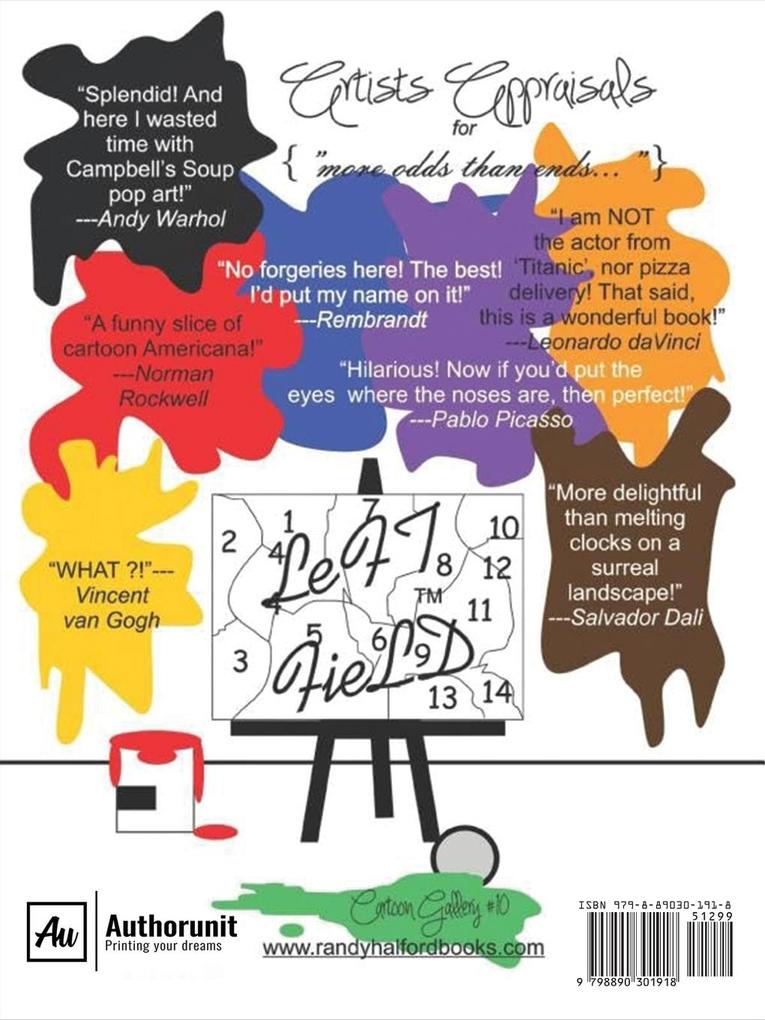 Artists Appraisals
for
{ "more odds than ends... "}
“Splendid! And
here I wasted
time with
Campbell’s Soup
pop art!”
---Andy Warhol
“I am NOT
the actor from
‘Titanic’, nor pizza
delivery! That said,
this is a wonderful book!”
---Leonardo daVinci
“No forgeries here! The best!
I’d put my name on it!”
---Rembrandt
“A funny slice of
cartoon Americana!”
---Norman
Rockwell
“Hilarious! Now if you’d put the
eyes where the noses are, then perfect!”
---Pablo Picasso
“WHAT ?!”---
Vincent
van Gogh
“More delightful
than melting
clocks on a
surreal
landscape!”
---Salvador Dali
1
2
7
10
4
LeFT
8
12
4
TM
11
5
6
3
FieLD
9
13
14
Cartoon Gallery #10
www.randyhalfordbooks.com
Au
Authorunit
Printing your dreams
ISBN 979-8-89030-191-8
51299
9 798890 301918